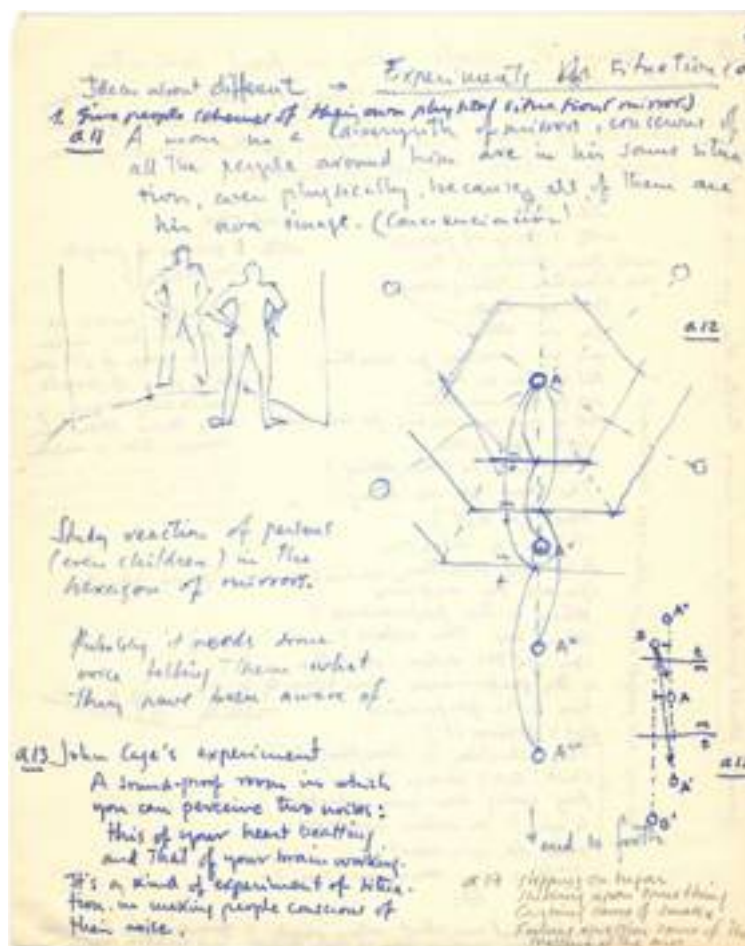 Ideas about different → Experiments situation
1. Give people schemes of their own physical situation (mirror)
a11 A man in a labyrinth of mirrors, conscious of
all the people around him are in his same situa-
tion, even physically, because all of them are
his own image. (Concienciación)
a12
A
A'
A''
A'''
and so forth
Study reaction of persons
(even children) in the
hexagon of mirrors.
Probably it needs some
voice telling them what
they have been aware of.
a13 John Cage's experiment
A sound-proof room in which
you can perceive two noises:
this of your heart beatting
and that of your brain working.
It's a kind of experiment of situa-
tion, in making people conscious of
their noise.
A''
B
m
A
m
A'
B'
stepping on sugar
something